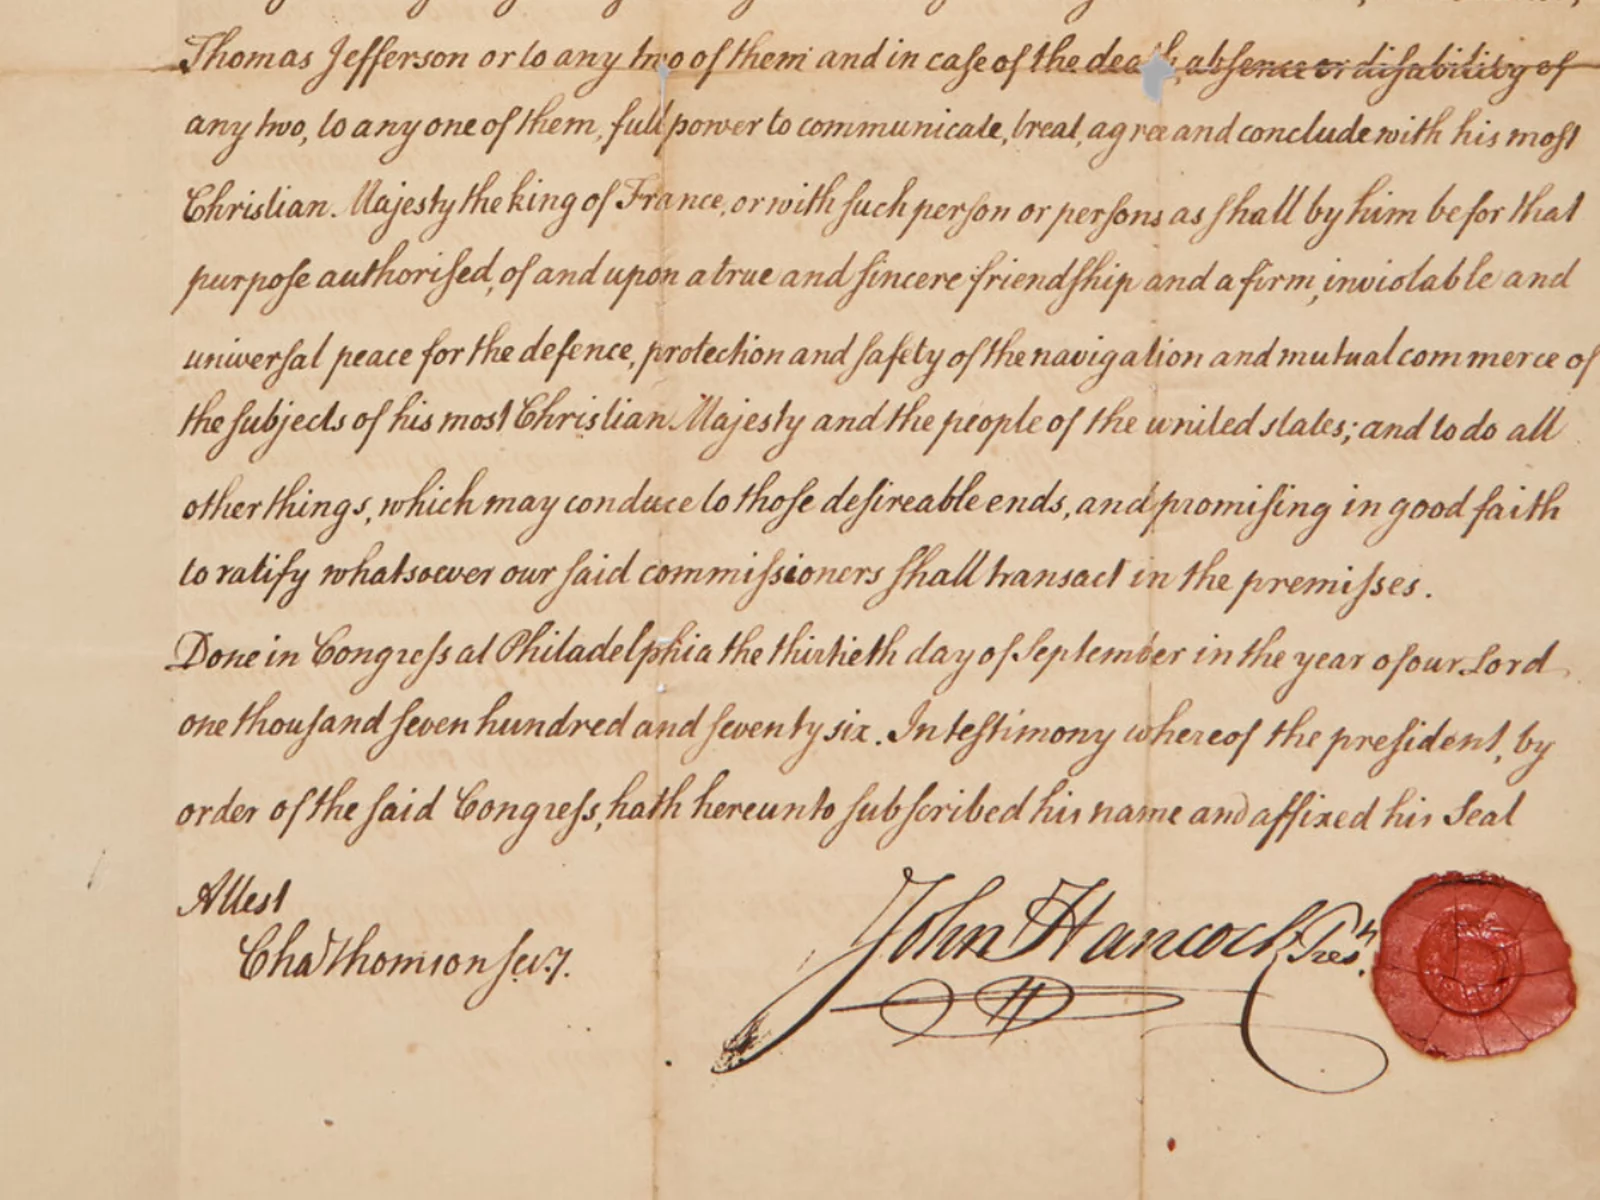 Thomas Jefferson or to any two of them and in case of the death, absence or disability of
any two, to any one of them, full power to communicate, treat, agree and conclude with his most
Christian Majesty the king of France, or with such person or persons as shall by him be for that
purpose authorised, of and upon a true and sincere friendship and a firm, inviolable and
universal peace for the defence, protection and safety of the navigation and mutual commerce of
the subjects of his most Christian Majesty and the people of the united states; and to do all
other things, which may conduce to those desireable ends, and promising in good faith
to ratify whatsoever our said commissioners shall transact in the premisses.
Done in Congress at Philadelphia the thirtieth day of September in the year of our Lord
one thousand seven hundred and seventy six. In testimony whereof the president, by
order of the said Congress, hath hereunto subscribed his name and affixed his Seal
Attest
John Hancock Presdt.
Chas Thomson Secy.